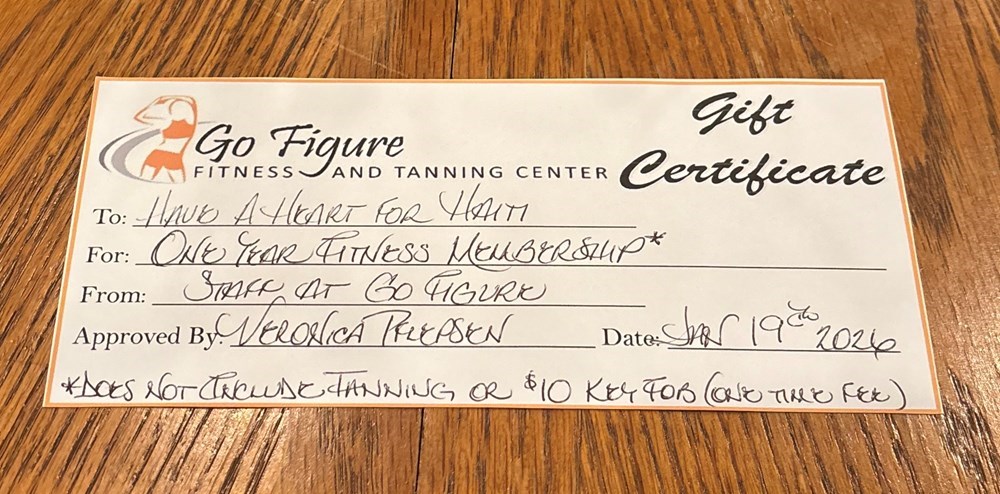 Go Figure
FITNESS AND TANNING CENTER
Gift
Certificate
To: HAVE A HEART FOR HAITI
For: ONE YEAR FITNESS MEMBERSHIP*
From: STAFF AT GO FIGURE
Approved By: VERONICA
Date: JAN 19th 2026
*DOES NOT INCLUDE TANNING OR $10 KEY FOB (ONE TIME FEE)